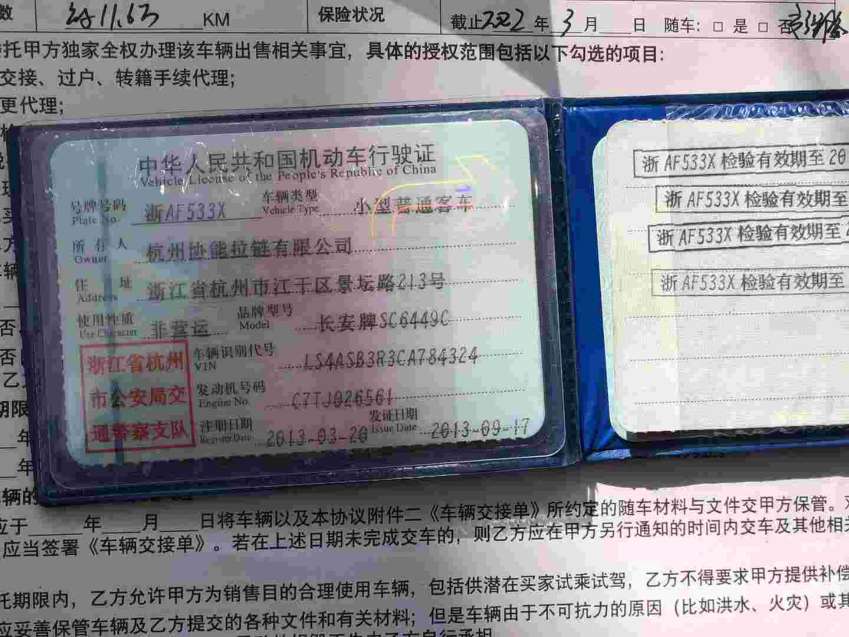 数 KM 保险状况 截止2022年3月 日 随车：□ 是 □ 否
托甲方独家全权办理该车辆出售相关事宜，具体的授权范围包括以下勾选的项目：
交接、过户、转籍手续代理；
更代理；
中华人民共和国机动车行驶证
Vehicle License of the People's Republic of China
号牌号码 浙AF533X 车辆类型 小型普通客车
Plate No. Vehicle Type
所有人 杭州协能拉链有限公司
Owner
住址 浙江省杭州市江干区景坛路213号
Address
使用性质 非营运 品牌型号 长安牌SC6449C
Use Character Model
浙江省杭州
市公安局交
通警察支队
车辆识别代号 LS4ASB3R3CA784324
VIN
发动机号码 C7TJ026561
Engine No.
注册日期 2013-03-20 发证日期 2013-09-17
Register Date Issue Date
浙AF533X 检验有效期至 20
浙AF533X 检验有效期至
浙AF533X 检验有效期至 2
浙AF533X 检验有效期至
年
年
应于 年 月 日将车辆以及本协议附件二《车辆交接单》所约定的随车材料与文件交甲方保管。
应当签署《车辆交接单》。若在上述日期未完成交车的，则乙方应在甲方另行通知的时间内交车及其他相关
托期限内，乙方允许甲方为销售目的合理使用车辆，包括供潜在买家试乘试驾，乙方不得要求甲方提供补偿
应妥善保管车辆及乙方提交的各种文件和有关材料；但是车辆由于不可抗力的原因（比如洪水、火灾）或其